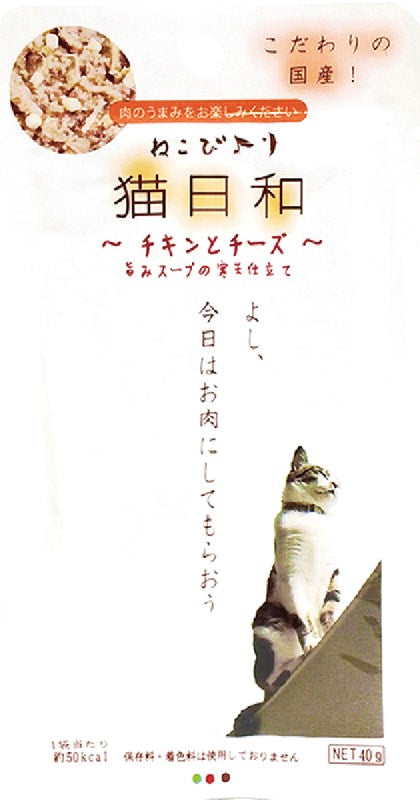 こだわりの
国産！
肉のうまみをお楽しみください
ねこびより
猫日和
～ チキンとチーズ ～
旨みスープの寒天仕立て
よし、
今日はお肉にしてもらおう
1袋当たり
約50kcal
保存料・着色料は使用しておりません
NET 40g